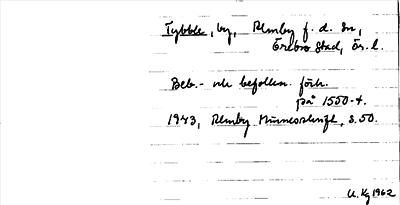 Tybble, by, Almby f. d. sn,
Örebro stad, Ör. l.
Beb.- och befolkn. förh.
på 1550-t.
1943, Almby Minnesskrift, s. 50.
U. Kg 1962